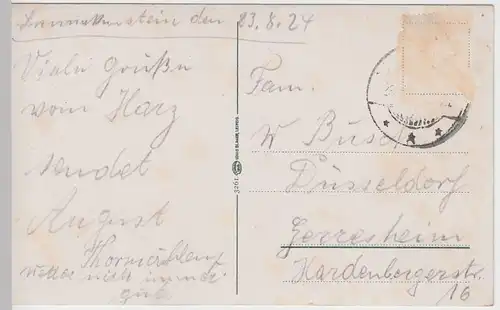 den 23.8.24
Viele Grüße
vom Harz
sendet
August
nicht immer
gut
3261
Fam.
W Busch
Düsseldorf
Gerresheim
Hardenbergerstr.
16